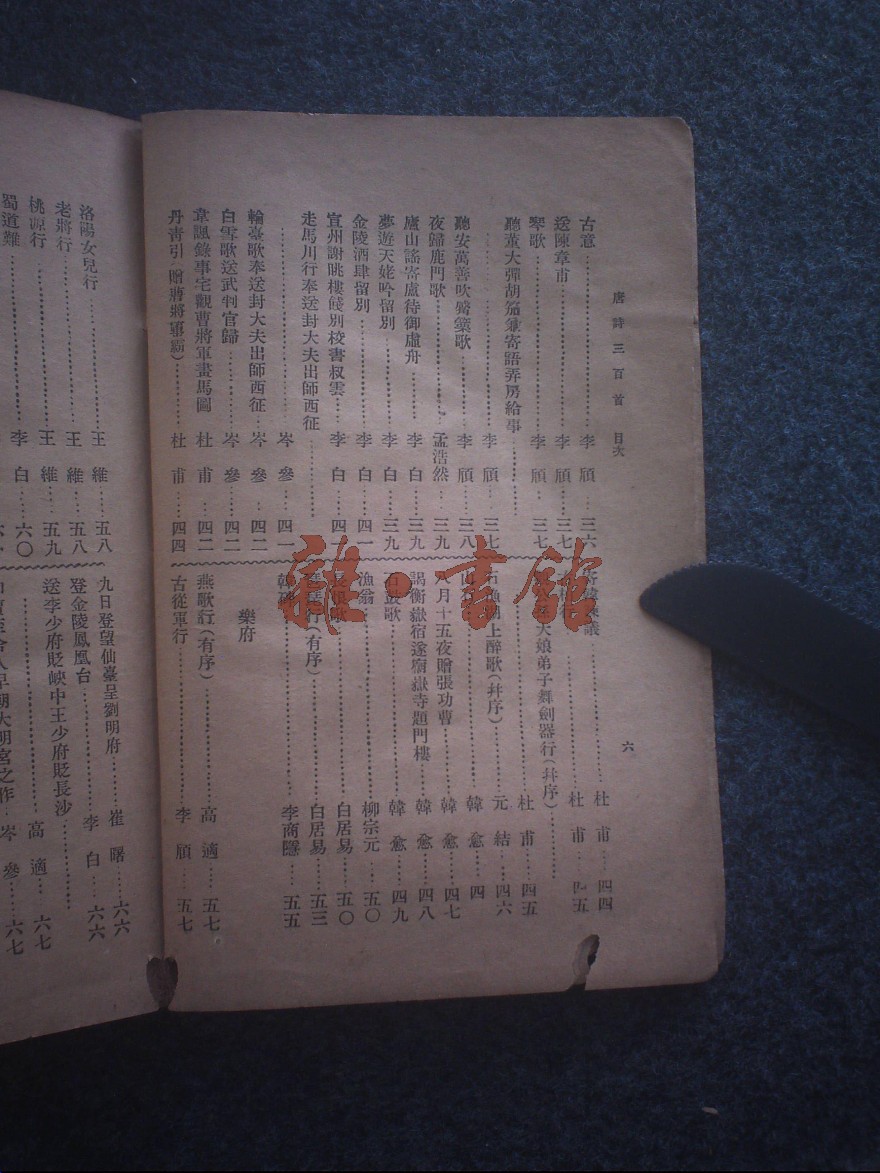 唐詩三百首 目次
六
古意……李頎…三六
送陳章甫……李頎…三七
琴歌……李頎…三七
聽董大彈胡笳聲寄語弄房給事……
……李頎…三七
聽安萬善吹觱篥歌……李頎…三八
夜歸鹿門歌……孟浩然…三九
廬山謠寄盧侍御虛舟……李白…三九
夢遊天姥吟留別……李白…三九
金陵酒肆留別……李白…四一
宣州謝眺樓餞別校書叔雲……李白…四一
走馬川行奉送封大夫出師西征……
……岑參…四一
輪臺歌奉送封大夫出師西征……岑參…四二
白雪歌送武判官歸……岑參…四二
韋諷錄事宅觀曹將軍畫馬圖……杜甫…四二
丹靑引(贈曹將軍霸)……杜甫…四四
杜甫…四四
杜甫…四五
大娘弟子舞劍器行(幷序)……
……杜甫…四五
上醉歌(幷序)……元結…四六
韓愈…四
八月十五夜贈張功曹……韓愈…四七
謁衡嶽宿遂廟嶽寺題門樓……韓愈…四八
石鼓歌……韓愈…四九
漁翁……柳宗元…五〇
長恨歌……白居易…五〇
琵琶行(有序)……白居易…五三
韓碑……李商隱…五五
樂府
燕歌行(有序)……高適…五七
古從軍行……李頎…五七
洛陽女兒行……王維…五八
老將行……王維…五八
桃源行……王維…五九
蜀道難……李白…六〇
九日登望仙臺呈劉明府……崔曙…六六
登金陵鳳凰台……李白…六六
送李少府貶峽中王少府貶長沙……
……高適…六七
早朝大明宮之作…岑參…六七
雜·書館